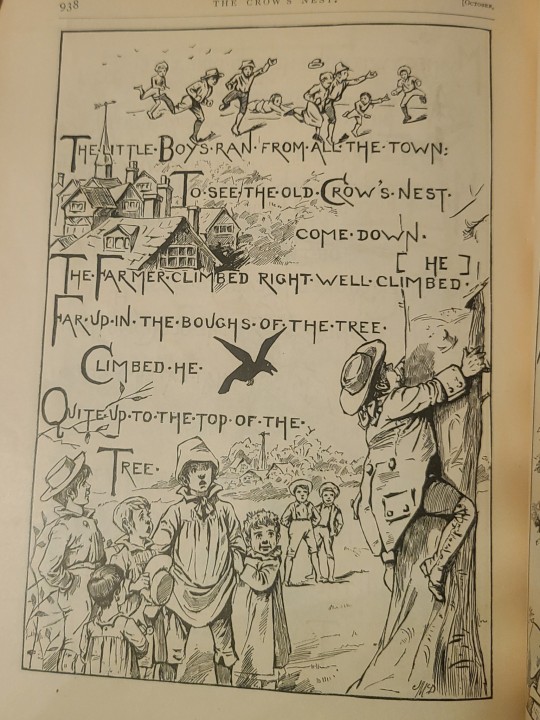 938
THE CROW'S NEST.
[OCTOBER,
THE·LITTLE·BOYS·RAN·FROM·ALL·THE·TOWN:
TO·SEE·THE·OLD·CROW'S·NEST.
COME·DOWN.
[ HE ]
THE·FARMER·CLIMBED RIGHT·WELL·CLIMBED.
FAR·UP·IN·THE·BOUGHS·OF·THE·TREE.
CLIMBED·HE.
QUITE·UP·TO·THE·TOP·OF·THE.
TREE.